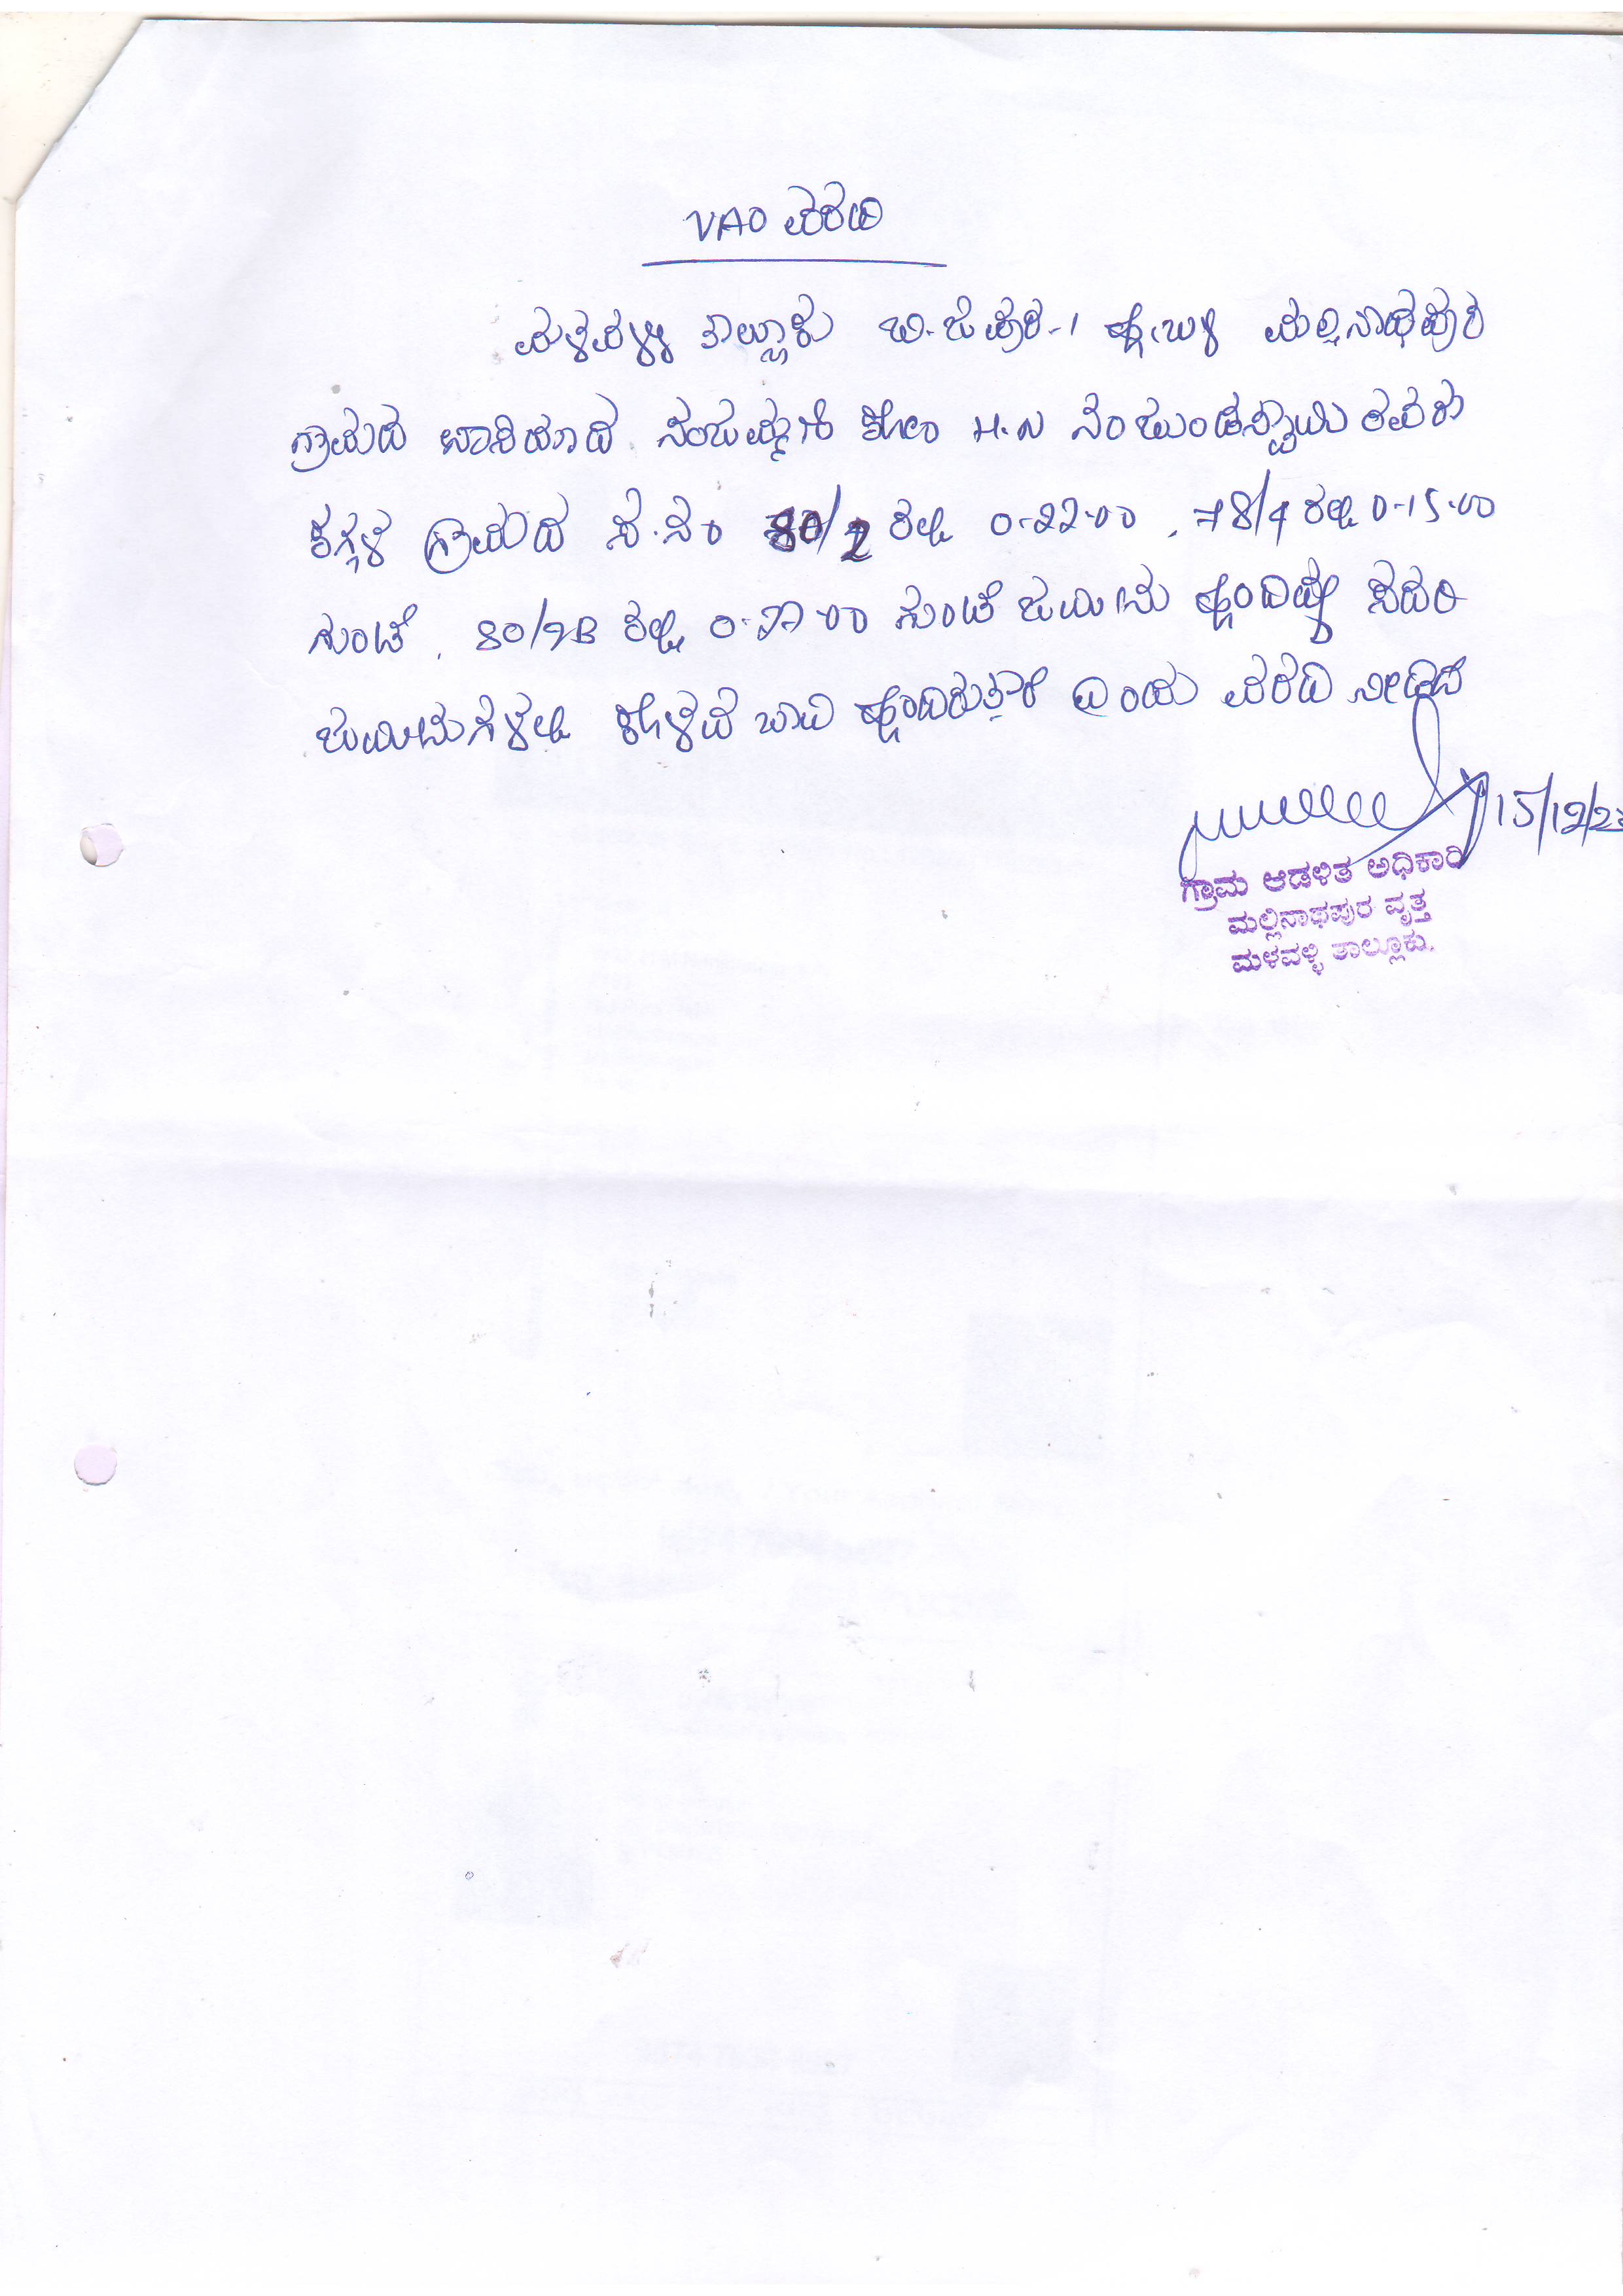 VAO ವರದಿ
ಮಳವಳ್ಳಿ ತಾಲ್ಲೂಕು ಬಿ.ಜಿ ಪುರ-1 ಹೋಬಳಿ ಮಲ್ಲಿನಾಥಪುರ
ಗ್ರಾಮದ ವಾಸಿಯಾದ ನಂಜಮ್ಮಣಿ ಕೋಂ H.N ನಂಜುಂಡಸ್ವಾಮಿ ರವರು
ಕಗ್ಗಳ ಗ್ರಾಮದ ಸ.ನಂ 80/2 ರಲ್ಲಿ 0-22-00, 78/4 ರಲ್ಲಿ 0-15-00
ಗುಂಟೆ, ರಲ್ಲಿ ಗುಂಟೆ ಜಮೀನು ಹೊಂದಿದ್ದು ಸದರಿ
ಜಮೀನುಗಳಲ್ಲಿ ಕೊಳವೆ ಬಾವಿ ಹೊಂದಿರುತ್ತಾರೆ ಎಂದು ವರದಿ ನೀಡಿದೆ
15/12/23
ಗ್ರಾಮ ಆಡಳಿತ ಅಧಿಕಾರಿ
ಮಲ್ಲಿನಾಥಪುರ ವೃತ್ತ
ಮಳವಳ್ಳಿ ತಾಲ್ಲೂಕು.